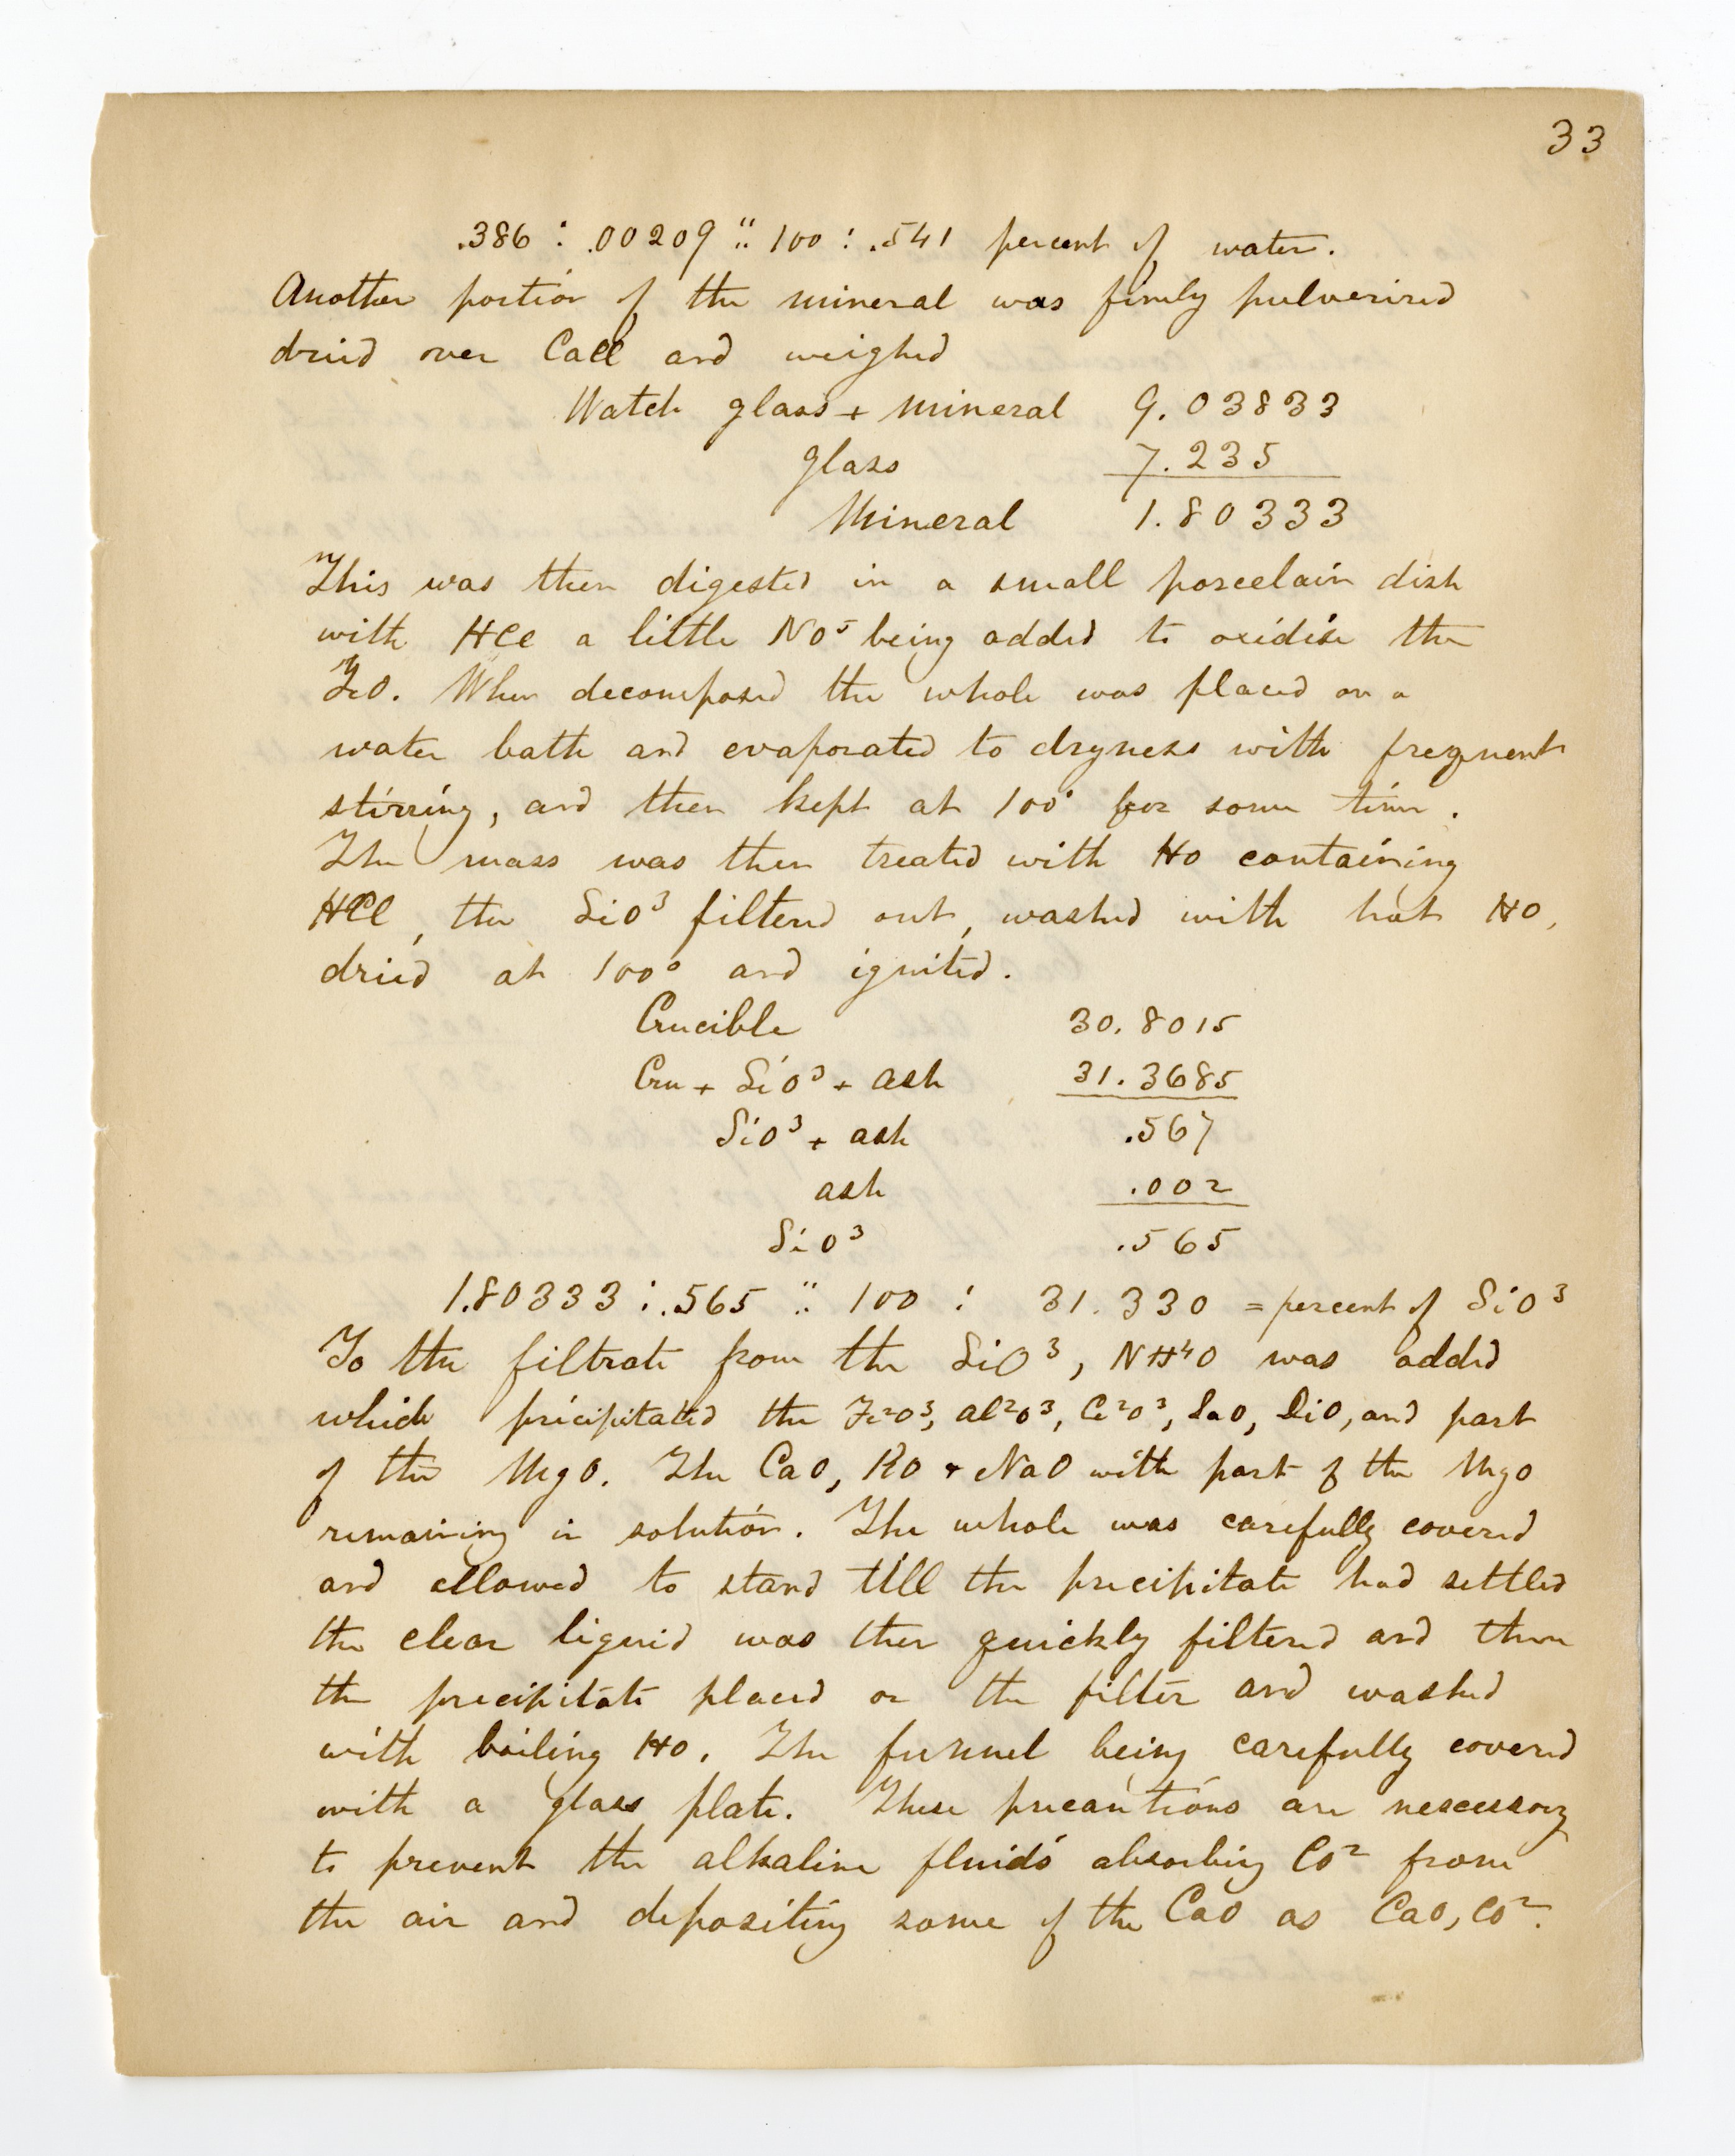 33
.386 : .00209 :: 100 : .541 percent of water.
Another portion of the mineral was finely pulverized
dried over CaCl and weighed
Watch glass + mineral 9.03833
glass 7.235
Mineral 1.80333
This was then digested in a small porcelain dish
with HCl a little NO⁵ being added to oxidise the
FeO. When decomposed the whole was placed on a
water bath and evaporated to dryness with frequent
stirring, and then kept at 100° for some time.
The mass was then treated with HO containing
HCl, the SiO³ filtered out, washed with hot HO,
dried at 100° and ignited.
Crucible 30.8015
Cru + SiO³ + ash 31.3685
SiO³ + ash .567
ash .002
SiO³ .565
1.80333 : .565 :: 100 : 31.330 = percent of SiO³
To the filtrate from the SiO³, NH⁴O was added
which precipitated the Fe²O³, Al²O³, Ce²O³, LaO, DiO, and part
of the MgO. The CaO, KO + NaO with part of the MgO
remaining in solution. The whole was carefully covered
and allowed to stand till the precipitate had settled
the clear liquid was then quickly filtered and then
the precipitate placed on the filter and washed
with boiling HO. The funnel being carefully covered
with a glass plate. These precautions are nescessary
to prevent the alkaline fluids absorbing CO² from
the air and depositing some of the CaO as CaO, CO².